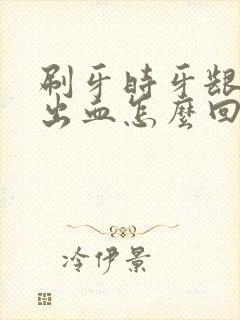 刷牙时牙龈
出血怎麼回
冷伊景